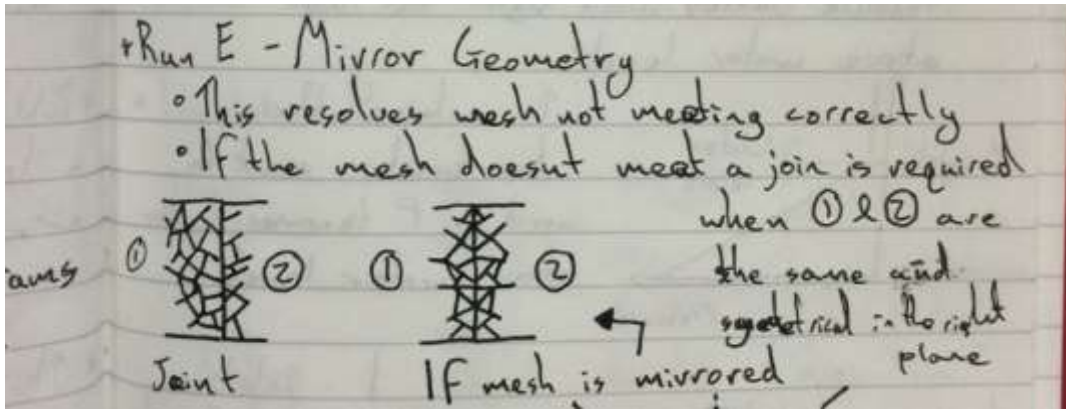 Run E - Mirror Geometry
• This resolves mesh not meeting correctly
• If the mesh doesnt meet a join is required
when ① & ② are
① ② ① ② the same and
ams symetrical in the right
plane
Joint If mesh is mirrored